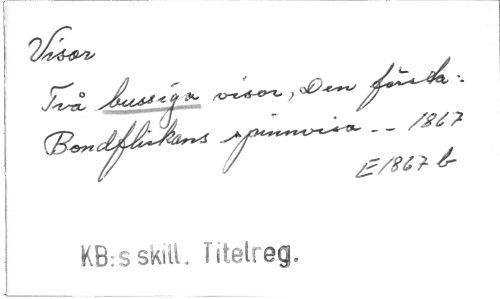 Visor
Två bussiga visor, Den första:
Bondflickans spinnvisa -- 1867
E1867 b
KB:s skill. Titelreg.